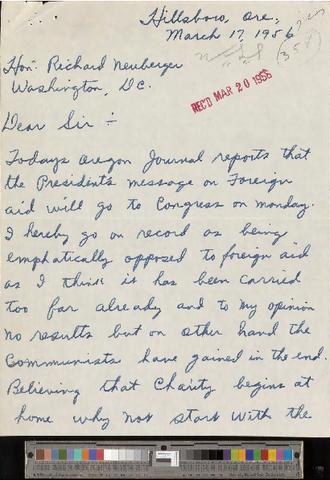 Hillsboro, Ore,
March 17, 1956
(357)
Hon. Richard Neuberger
Washington, D.C.
REC'D MAR 20 1956
Dear Sir :-
Todays Oregon Journal reports that
the President's message on Foreign
aid will go to Congress on monday.
I hereby go on record as being
emphatically opposed to foreign aid
as I think it has been carried
too far already and to my opinion
no results but on other hand the
Communists have gained in the end.
Believing that Charity begins at
home why not start with the